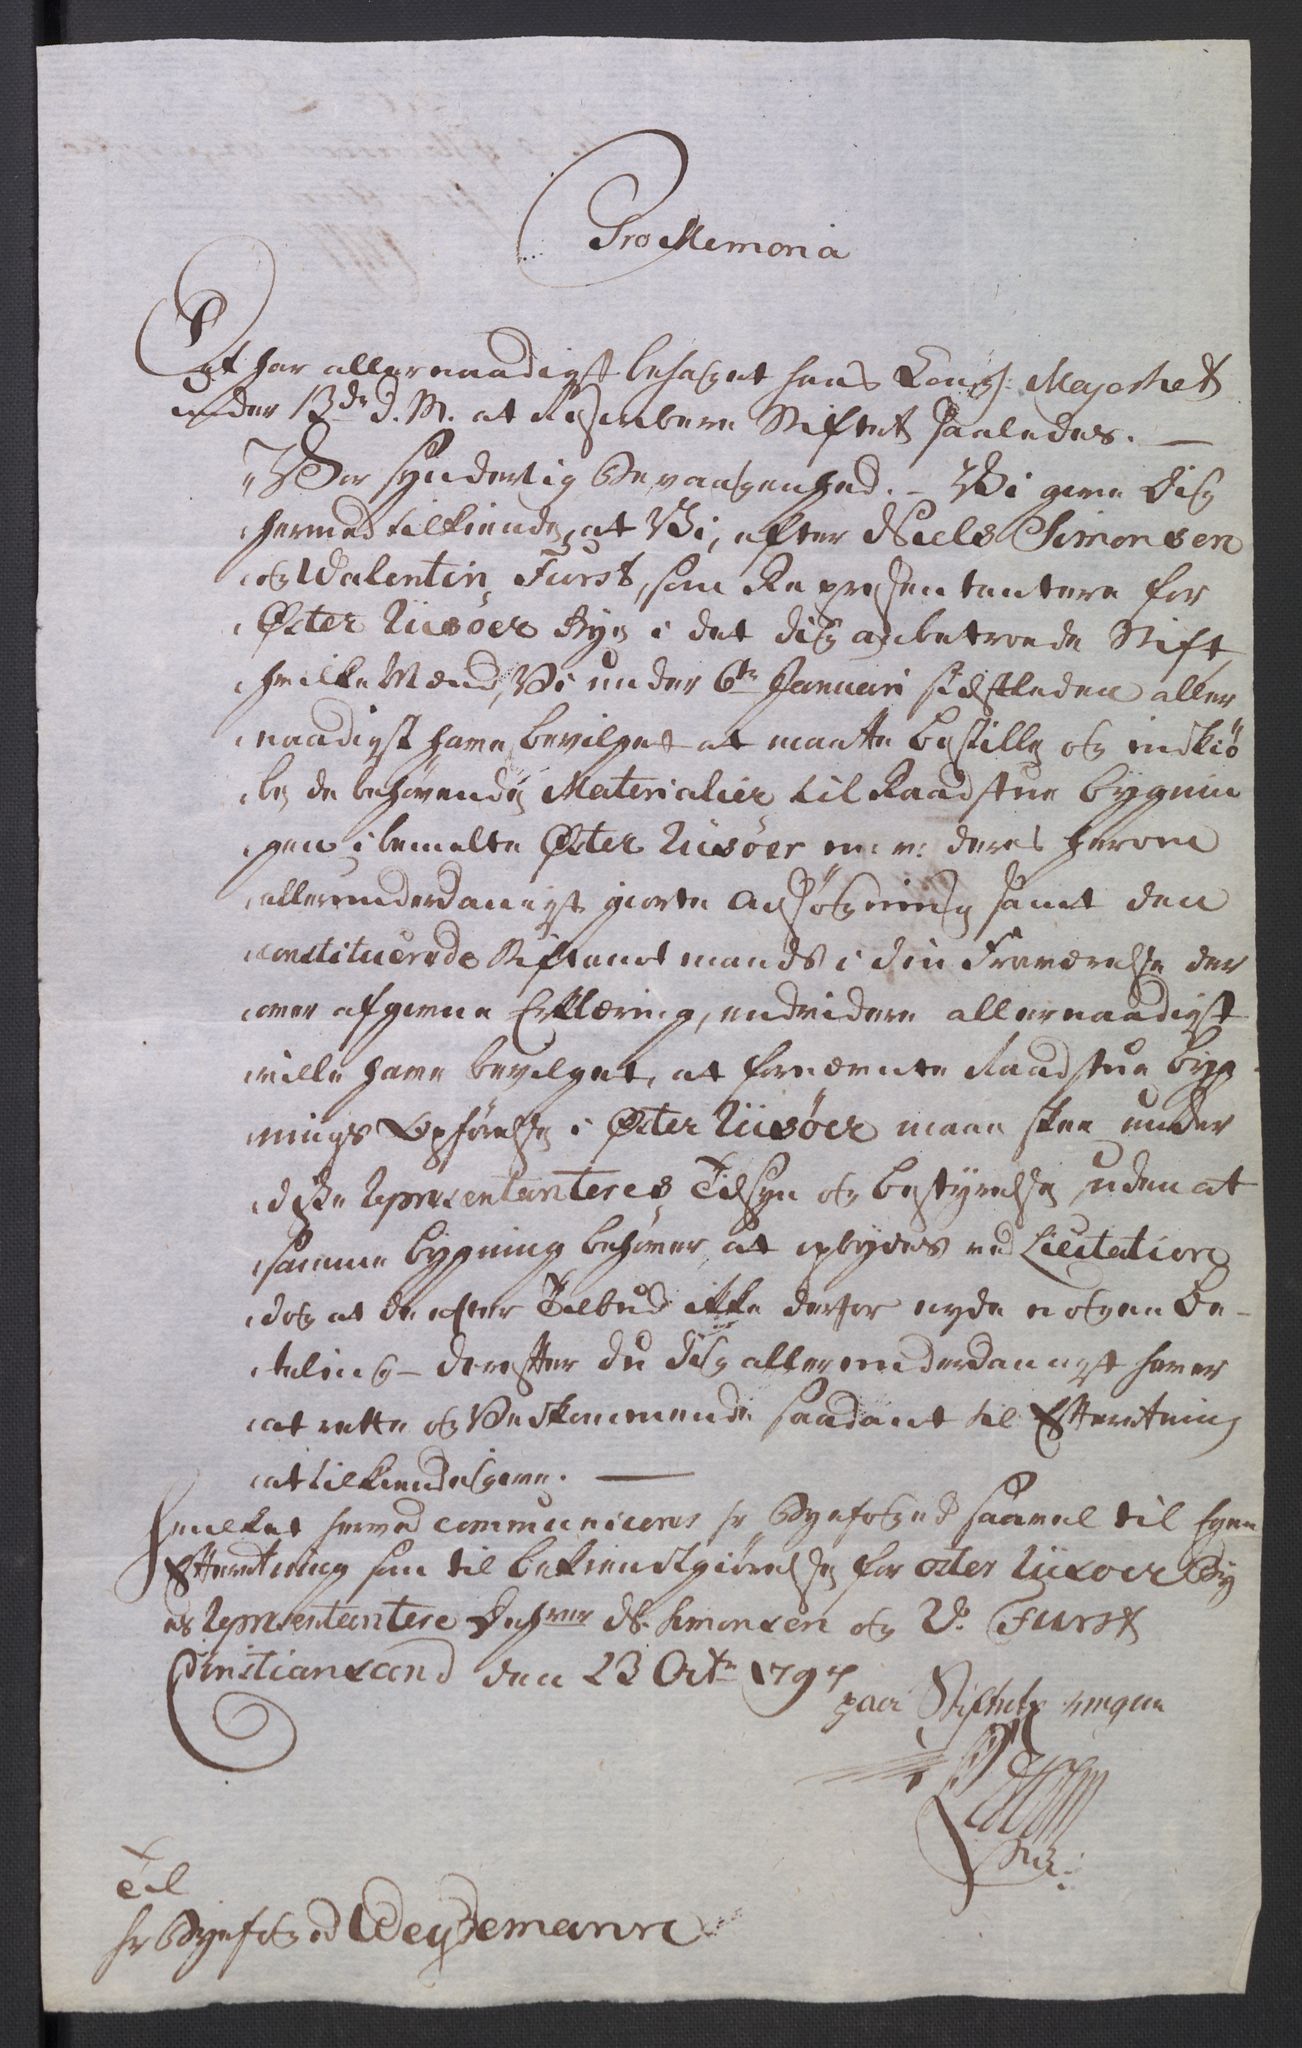 Pro Memoria
Det har allernaadigst behaget hans Kongl: Majestet
under 13de d. M. at Rescribere Stiftet saaledes. —
"Vor synderlig Bevaagenhed. – Vi give Dig
hermed tilkiende, at Vi, efter Niels Simonsen
og Walentin Furst, som Repræsentantere for
Øster Riisöer Bye i det dig anbetroede Stift,
hvilke Mænd, Vi under 6te Januari sidstleden aller
naadigst have bevilget at maatte bestille og indkiö
be de behøvende Materialier til Raadstue bygnin
gen i bemelte Øster Riisöer m: v: deres herom
allerunderdanigst giorte Ansögning samt den
constituerede Stiftamtmands i din Fraværelse der
over afgivne Erklæring, endvidere allernaadigst
ville have bevilget, at fornævnte Raadstue byg-
nings Opförelse i Øster Riisöer maae skee under
disse Repræsentanteres Tilsyn og bestyrelse, uden at
samme bygning behøver at opbydes ved Licitation
dog at de efter Tilbud ikke derfor nyde nogen Be-
taling – derefter du dig allerunderdanigst haver
at rette og Vedkommende saadant til Efterretning
at tilkiendegive. —
Hvilket herved communiceres hr Byefoged saavel til Egen
Efterretning som til bekiendtgiörelse for Oster Riisoer By
es Repræsentantere N. Simonsen og V. Furst
Christiansand den 23 Octr 1794
paa Stiftets vegne
Til
hr Byefoged Weydemann